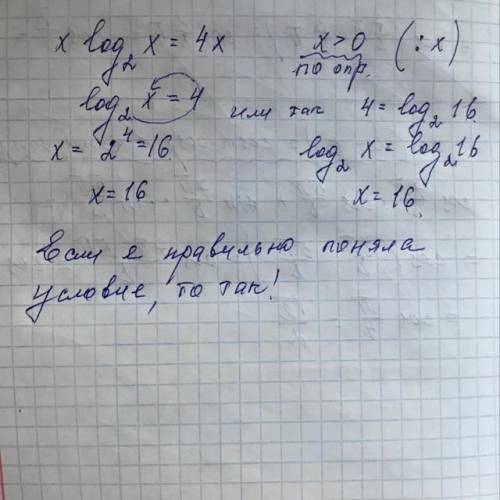 x log₂ x = 4x x > 0 (: x)
по опр.
log₂ x = 4 или так 4 = log₂ 16
x = 2⁴ = 16 log₂ x = log₂ 16
x = 16 x = 16
Если я правильно поняла
условие, то так!